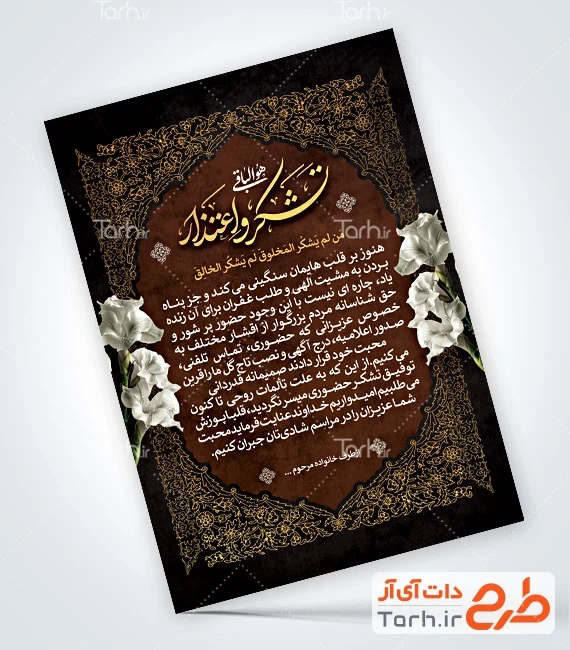 Tarh.ir
هوالباقی
تشکر و اعتذار
مَن لَم یَشکُر المَخلوق لَم یَشکُر الخالِق
هنوز بر قلب هایمان سنگینی می کند و جز پناه
بردن به مشیت الهی و طلب غفران برای آن زنده
یاد، چاره ای نیست با این وجود حضور پر شور و
حق شناسانه مردم بزرگوار از اقشار مختلف به
خصوص عزیزانی که حضوری، تماس تلفنی،
صدور اعلامیه، درج آگهی و نصب تاج گل ما را قرین
محبت خود قرار دادند صمیمانه قدردانی
می کنیم. از این که به علت تألمات روحی تاکنون
توفیق تشکر حضوری میسر نگردید، قلبا پوزش
می طلبیم امیدواریم خداوند عنایت فرماید محبت
شما عزیزان را در مراسم شادی تان جبران کنیم.
از طرف خانواده مرحوم ...
طرح
دات آی آر
Tarh.ir